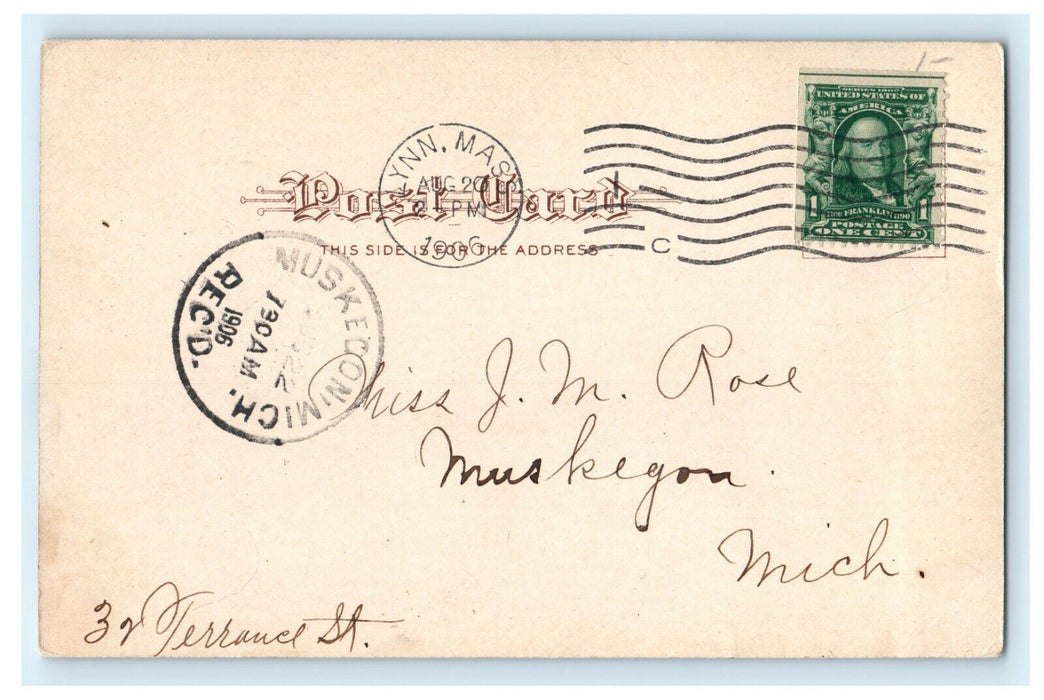 SERIES 1902
UNITED STATES OF
AMERICA
1706 FRANKLIN 1790
1 1
POSTAGE
ONE CENT
LYNN, MASS.
AUG 20
PM
1906
C
Post Card
THIS SIDE IS FOR THE ADDRESS
MUSKEGON, MICH.
AUG 22
7 30 AM
1906
REC'D.
Miss J. M. Rose
Muskegon.
Mich.
32 Terrance St.